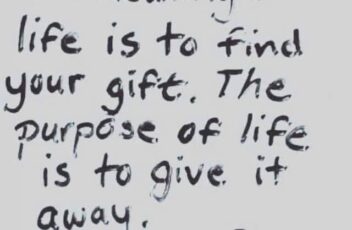 life is to find
your gift. The
purpose of life
is to give it
away.